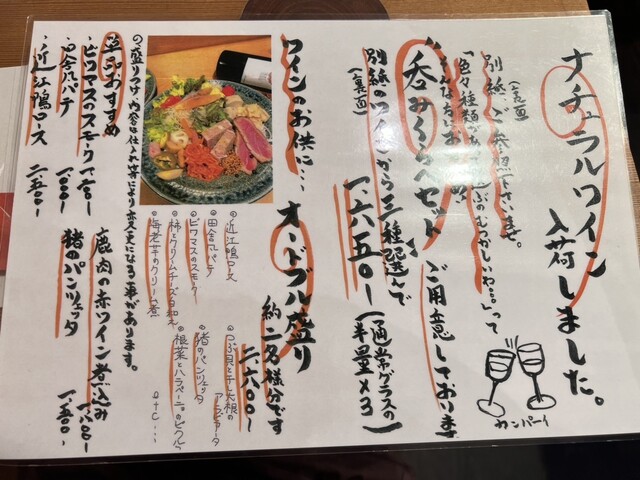 ナチュラルワイン
入荷しました。
(裏面)
別紙、ご参照下さいませ。
「色々種類があって選ぶのむつかしいわ…」って
そんなあなたにおすすめ!
呑みくらべセット ご用意しております
別紙のワインから三種選んで
(裏面)
一、六五〇ー(通常グラスの半量×3)
カンパーイ
ワインのお供に…
オードブル盛り
約二名様分です
二、六〇〇ー
◎近江鴨ロース
◎田舎風パテ
◎ビワマスのスモーク
◎柿とクリームチーズ白和え
◎海老芋のクリーム煮
◎つぶ貝と干し大根のアラビアータ
◎猪のパンツェッタ
◎根菜とハラペーニョのピクルス
etc…
の盛りつけ、内容は仕入れ等により変更になる事があります。
単品おすすめ
・ビワマスのスモーク 一、二〇〇ー
・田舎風パテ 一、〇〇〇ー
・近江鴨ロース 二、五〇〇ー
鹿肉の赤ワイン煮込み 一、八〇〇ー
猪のパンツェッタ 一、五〇〇ー